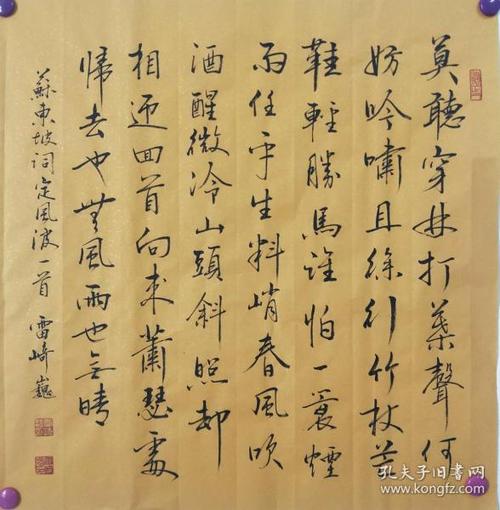 莫聽穿林打葉聲何
妨吟嘯且徐行竹杖芒
鞋輕勝馬誰怕一蓑煙
雨任平生料峭春風吹
酒醒微冷山頭斜照却
相迎回首向来蕭瑟處
歸去也無風雨也无晴
蘇東坡詞定風波一首 雷崎巍
孔夫子旧书网
www.kongfz.com